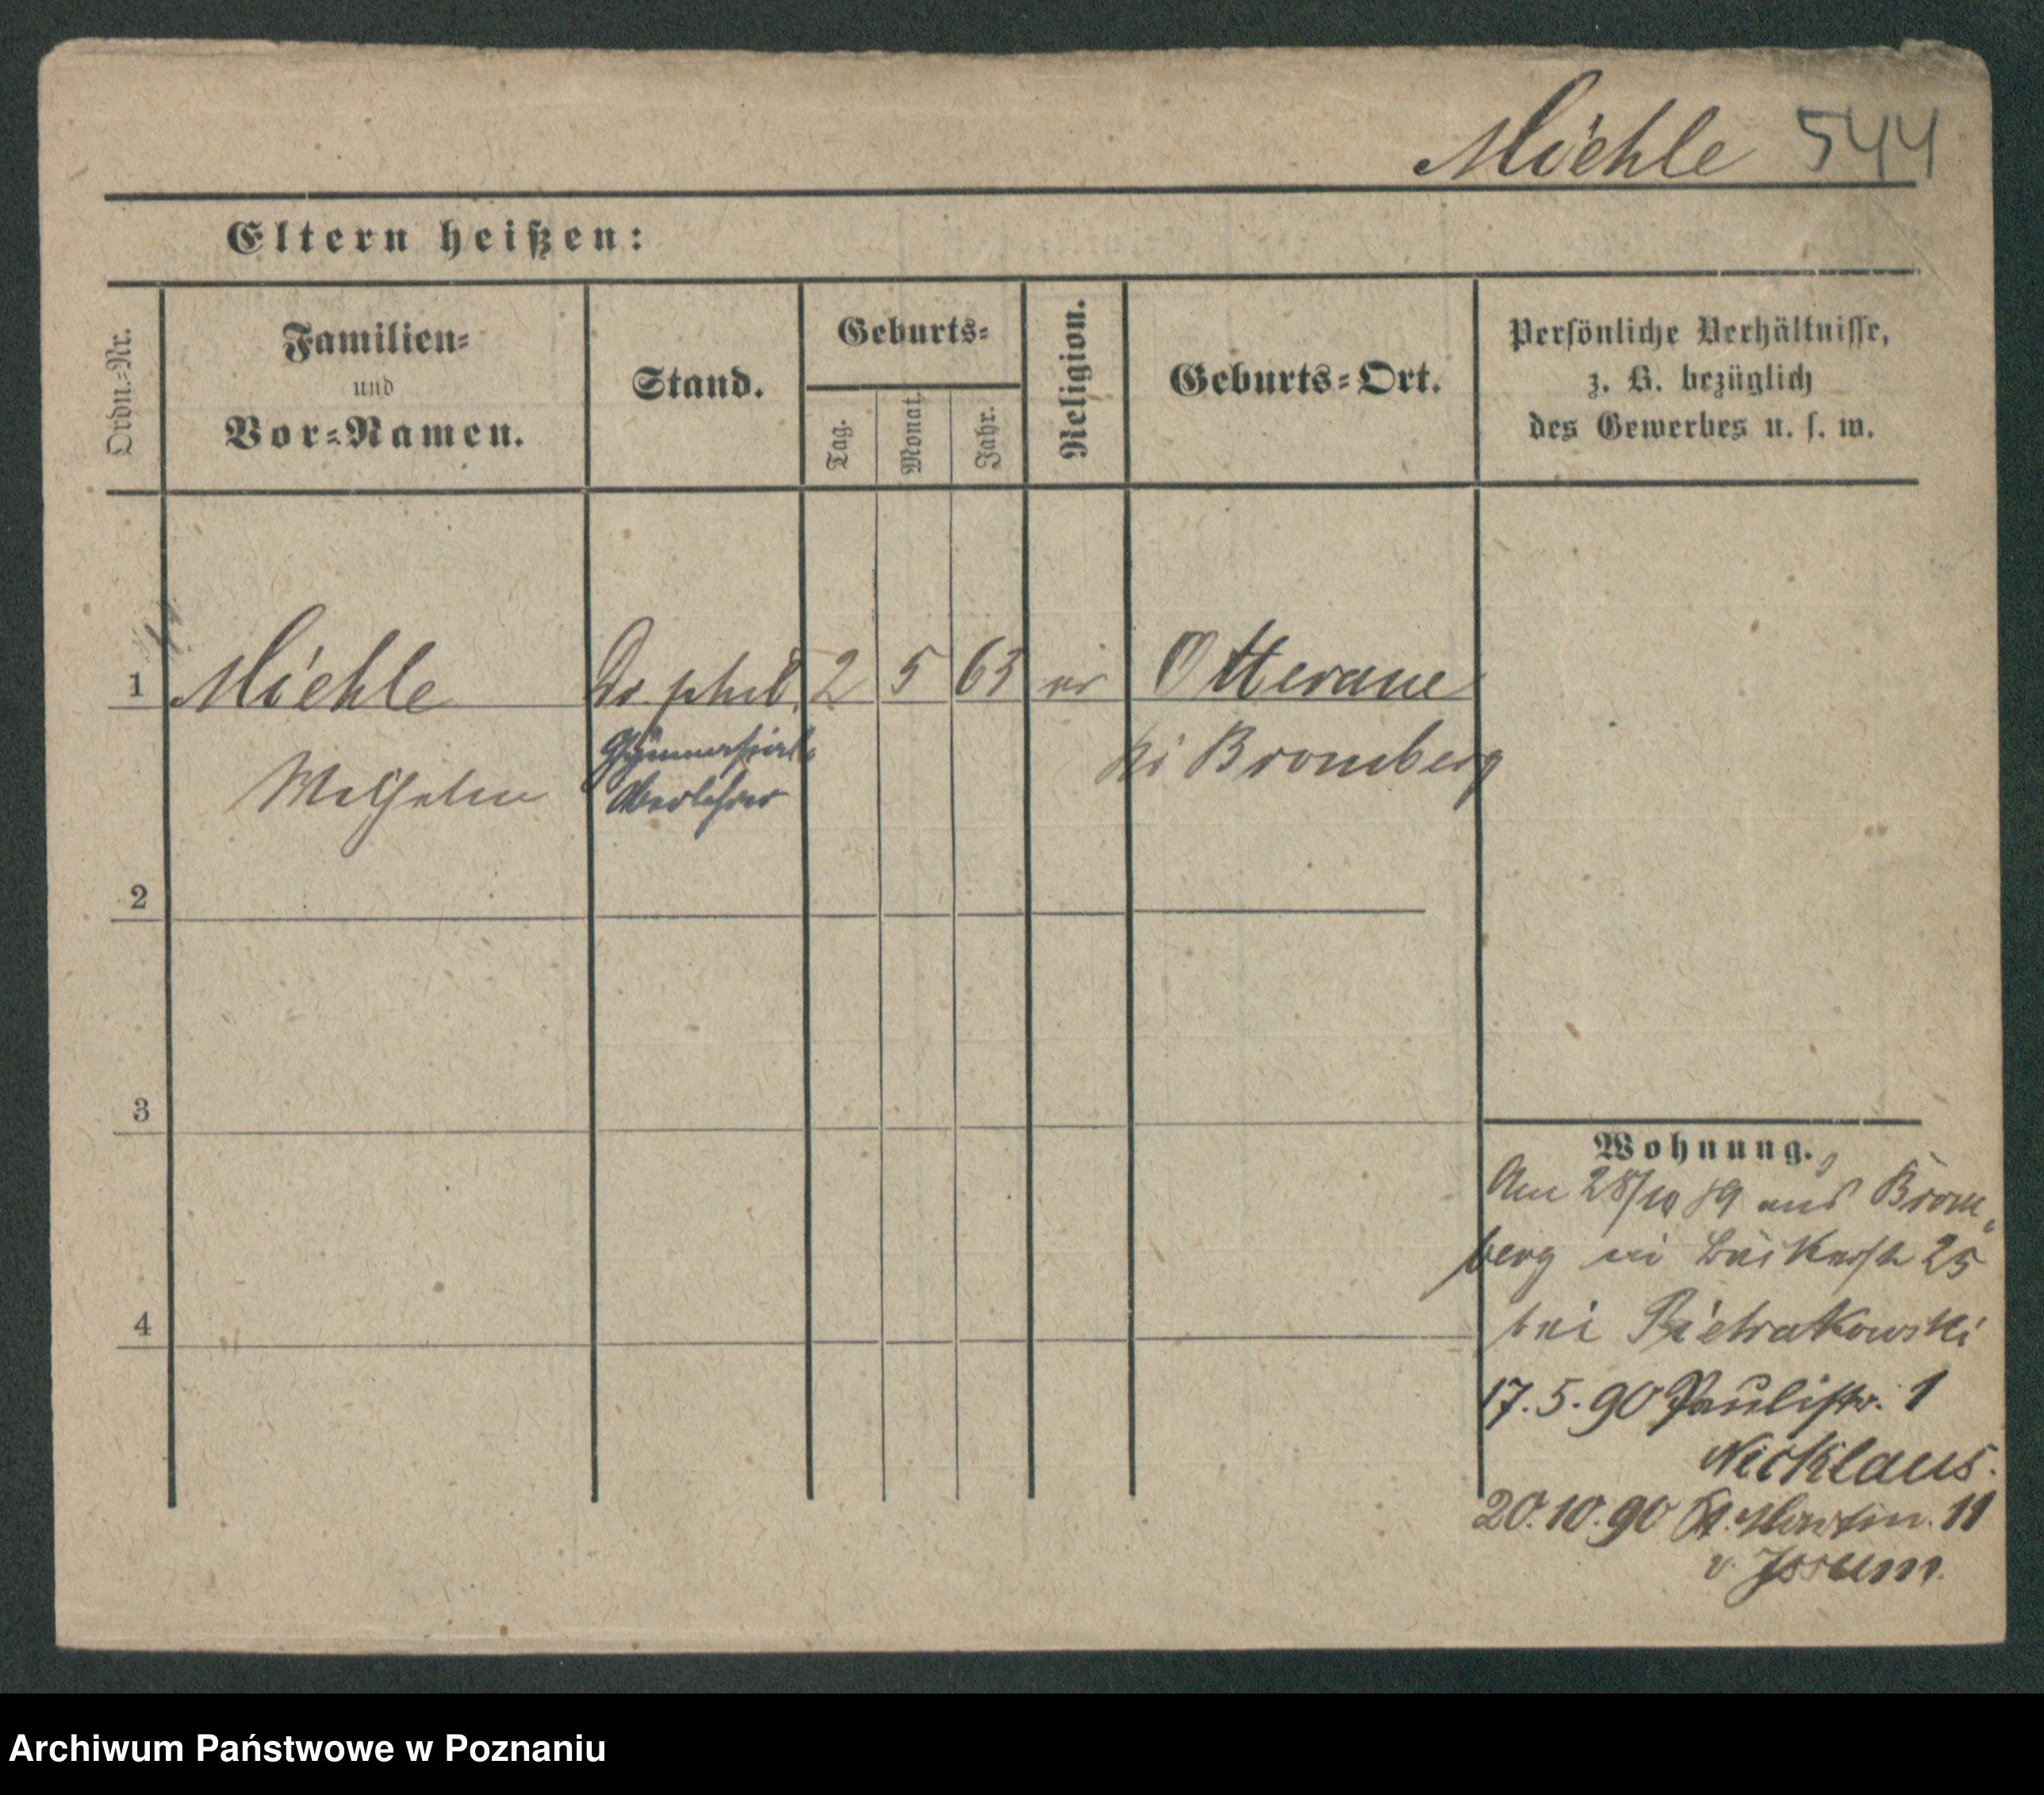 Miehle 544
Eltern heißen:
Ordn.-Nr.
Familien-
und
Vor-Namen.
Stand.
Geburts-
Tag.
Monat.
Jahr.
Religion.
Geburts-Ort.
Persönliche Verhältnisse,
z. B. bezüglich
des Gewerbes u. s. w.
1 Miehle Dr. phil. 2 5 63 Otteraue
Wilhelm Gymnasial- Oberlehrer Bromberg
2
3
4
Wohnung.
Am 28/10 89 aus Brom-
berg Bäckerstr 25
bei Pietrakowski
17.5.90 Paulistr. 1
Nicklaus.
20.10.90 St. Martin. 11
v. Issum.
Archiwum Państwowe w Poznaniu